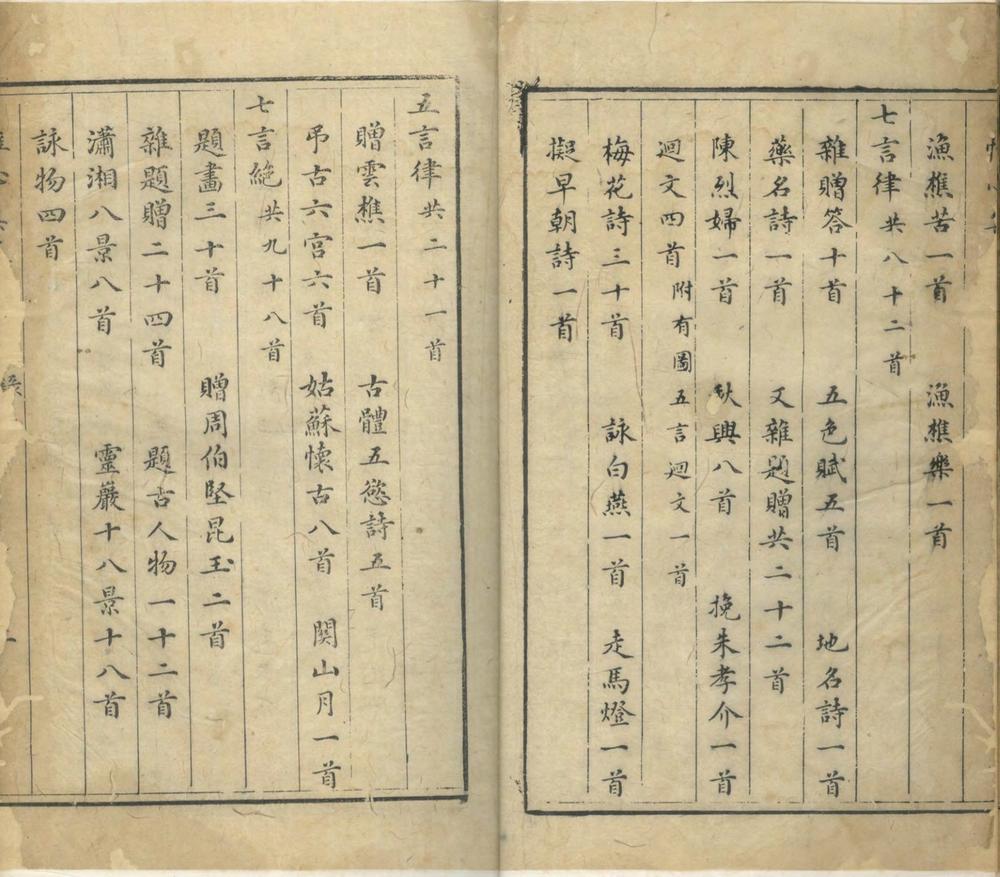 漁樵苦一首 漁樵樂一首
七言律共八十二首
雜贈答十首 五色賦五首 地名詩一首
藥名詩一首 又雜題贈共二十二首
陳烈婦一首 秋興八首 挽朱孝介一首
迴文四首附有圖 五言迴文一首
梅花詩三十首 詠白燕一首 走馬燈一首
擬早朝詩一首
五言律共二十一首
贈雲樵一首 古體五慾詩五首
弔古六宮六首 姑蘇懷古八首 関山月一首
七言絶共九十八首
題畫三十首 贈周伯堅昆玉二首
雜題贈二十四首 題古人物一十二首
瀟湘八景八首 靈巖十八景十八首
詠物四首